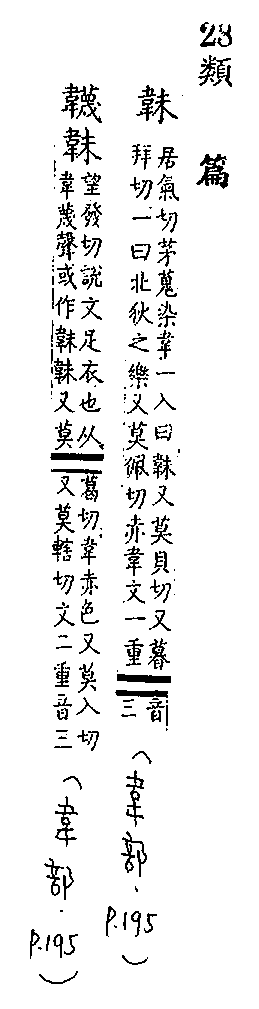 28類篇
韎
居氣切茅蒐染韋一入曰韎又莫貝切又暮
拜切一曰北狄之樂又莫佩切赤韋文一重
音
三
(韋部.P.195)
韤韎
望發切說文足衣也从
韋蔑聲或作韎韎又莫
葛切韋赤色又莫入切
又莫轄切文二重音三
(韋部.P.195)